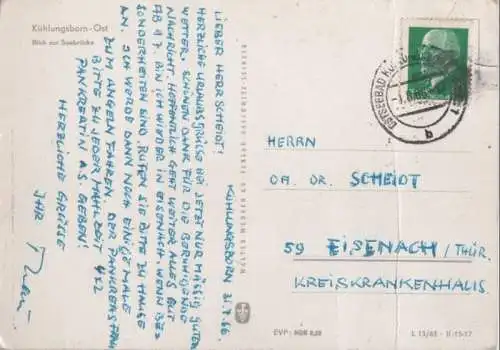 Kühlungsborn-Ost
Blick zur Seebrücke
KÜHLUNGSBORN 31.7.66
LIEBER HERR SCHEIDT!
HERZLICHE URLAUBSGRÜSSE BEI JETZT NUR MÄSSIG GUTEM
WETTER. SCHÖNEN DANK FÜR DIE BERUHIGENDE
NACHRICHT. HOFFENTLICH GEHT WEITER ALLES GUT
AB 9.7. BIN ICH WIEDER IN EISENACH. WENN BES
SONDERHEITEN SIND, RUFEN SIE BITTE ZU HAUSE
AN. ICH WERDE DANN NOCH EINIGE MALE
ZUM ANGELN FAHREN. DER PANKREASFRAU
BITTE ZU JEDER MAHLZEIT 4x2
PANKREATIN A.S. GEBEN!
HERZLICHE GRÜSSE
IHR
OSTSEEBAD
b
HERRN
OA. DR. SCHEIDT
59 EISENACH/THÜR.
KREISKRANKENHAUS.
EVP: MDN 0,20
L 15/65 - II-15-17